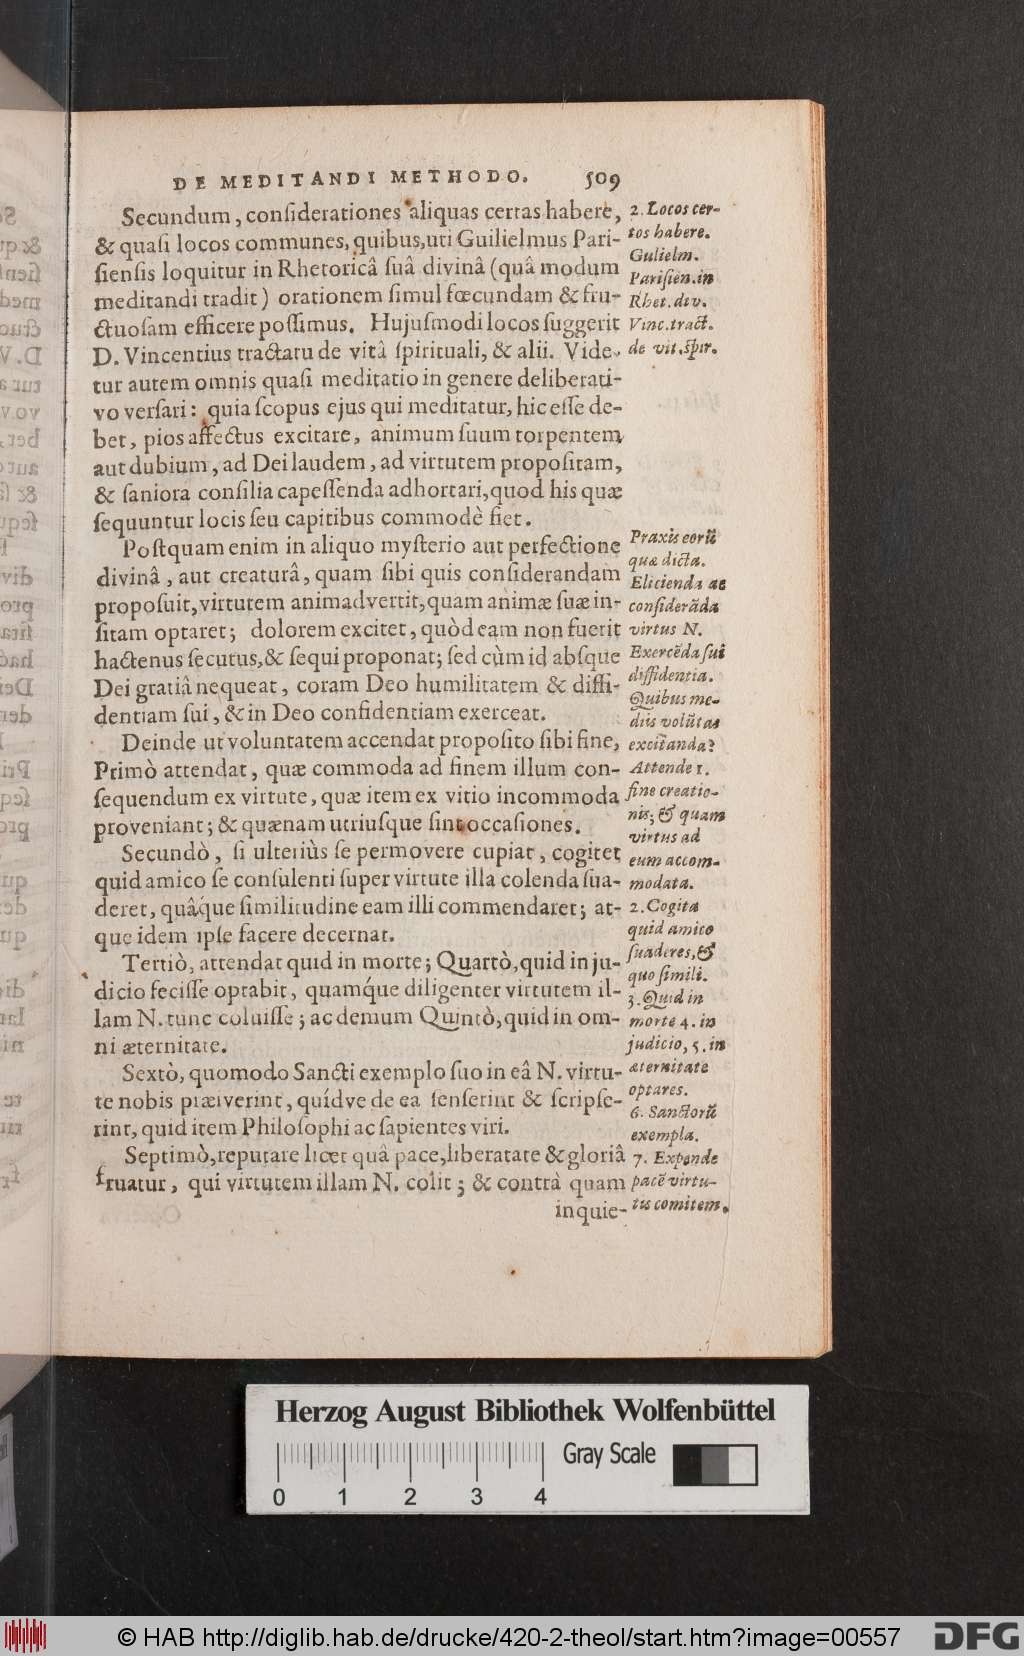 DE MEDITANDI METHODO. 509
Secundum, considerationes aliquas certas habere,
& quasi locos communes, quibus, uti Guilielmus Pari-
siensis loquitur in Rhetoricâ suâ divinâ (quâ modum
meditandi tradit) orationem simul fœcundam & fru-
ctuosam efficere possimus. Hujusmodi locos suggerit
D. Vincentius tractatu de vitâ spirituali, & alii. Vide-
tur autem omnis quasi meditatio in genere deliberati-
vo versari: quia scopus ejus qui meditatur, hic esse de-
bet, pios affectus excitare, animum suum torpentem
aut dubium, ad Dei laudem, ad virtutem propositam,
& saniora consilia capessenda adhortari, quod his quæ
sequuntur locis seu capitibus commodè fiet.
Postquam enim in aliquo mysterio aut perfectione
divinâ, aut creaturâ, quam sibi quis considerandam
proposuit, virtutem animadvertit, quam animæ suæ in-
sitam optaret; dolorem excitet, quòd eam non fuerit
hactenus secutus, & sequi proponat; sed cùm id absque
Dei gratiâ nequeat, coram Deo humilitatem & diffi-
dentiam sui, & in Deo confidentiam exerceat.
Deinde ut voluntatem accendat proposito sibi fine,
Primò attendat, quæ commoda ad finem illum con-
sequendum ex virtute, quæ item ex vitio incommoda
proveniant; & quænam utriusque sint occasiones.
Secundò, si ulteriùs se permovere cupiat, cogitet
quid amico se consulenti super virtute illa colenda sua-
deret, quâque similitudine eam illi commendaret; at-
que idem ipse facere decernat.
Tertiò, attendat quid in morte; Quartò, quid in ju-
dicio fecisse optabit, quamque diligenter virtutem il-
lam N. tunc coluisse; ac demum Quintò, quid in om-
ni æternitate.
Sextò, quomodo Sancti exemplo suo in eâ N. virtu-
te nobis præiverint, quídve de ea senserint & scripse-
rint, quid item Philosophi ac sapientes viri.
Septimò, reputare licet quâ pace, liberatate & gloriâ
fruatur, qui virtutem illam N. colit; & contrà quam
inquie-
2. Locos cer-
tos habere.
Gulielm.
Parisien. in
Rhet. div.
Vinc. tract.
de vit. spir.
Praxis eorũ
quæ dicta.
Elicienda ac
considerãda
virtus N.
Exercẽda sui
diffidentia.
Quibus me-
diis volũtas
excitanda?
Attende 1.
fine creatio-
nis; & quam
virtus ad
eum accom-
modata.
2. Cogita
quid amico
suaderes, &
quo simili.
3. Quid in
morte 4. in
judicio, 5. in
æternitate
optares.
6. Sanctorũ
exempla.
7. Expende
pacẽ virtu-
tis comitem.
Herzog August Bibliothek Wolfenbüttel
Gray Scale
0 1 2 3 4
© HAB http://diglib.hab.de/drucke/420-2-theol/start.htm?image=00557
DFG